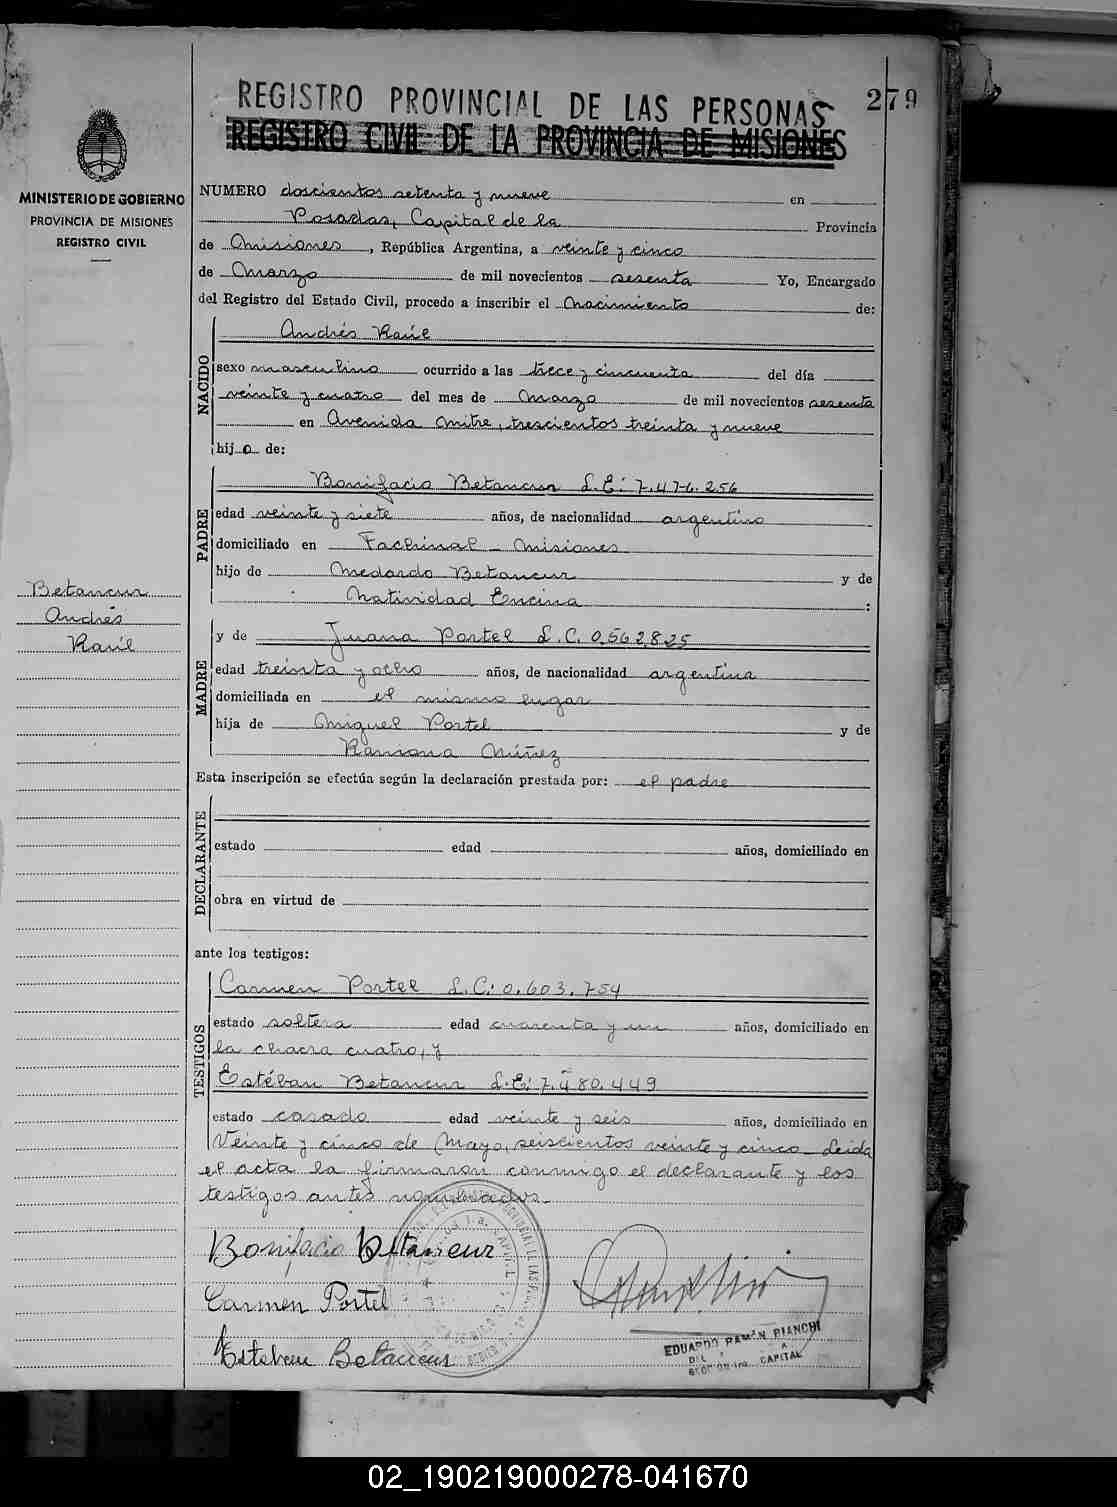 REGISTRO PROVINCIAL DE LAS PERSONAS
279
REGISTRO CIVIL DE LA PROVINCIA DE MISIONES
MINISTERIO DE GOBIERNO
PROVINCIA DE MISIONES
REGISTRO CIVIL
NUMERO doscientos setenta y nueve en
Posadas, Capital de la Provincia
de Misiones, República Argentina, a veinte y cinco
de Marzo de mil novecientos sesenta Yo, Encargado
del Registro del Estado Civil, procedo a inscribir el Nacimiento de:
NACIDO
Andrés Raúl
sexo masculino ocurrido a las trece y cincuenta del día
veinte y cuatro del mes de Marzo de mil novecientos sesenta
en Avenida Mitre, trescientos treinta y nueve
hijo de:
PADRE
Bonifacio Betancur L.E: 7.476.256
edad veinte y siete años, de nacionalidad argentino
domiciliado en Fachinal - Misiones
hijo de Medardo Betancur y de
Natividad Encina :
Betancur
Andrés
Raúl
MADRE
y de Juana Portel L.C. 0.562.825
edad treinta y ocho años, de nacionalidad argentina
domiciliada en el mismo lugar
hija de Miguel Portel y de
Ramona Núñez
Esta inscripción se efectúa según la declaración prestada por: el padre
DECLARANTE
estado edad años, domiciliado en
obra en virtud de
ante los testigos:
TESTIGOS
Carmen Portel L.C: 0.603.754
estado soltera edad cuarenta y un años, domiciliado en
la chacra cuatro, y
Estéban Betancur L.E: 7.480.449
estado casado edad veinte y seis años, domiciliado en
Veinte y cinco de Mayo, seiscientos veinte y cinco - Leida
el acta la firmaron conmigo el declarante y los
testigos antes nombrados.
Bonifacio Betancur
Carmen Portel
Esteban Betancur
EDUARDO RAMÓN BIANCHI
CAPITAL
02_190219000278-041670